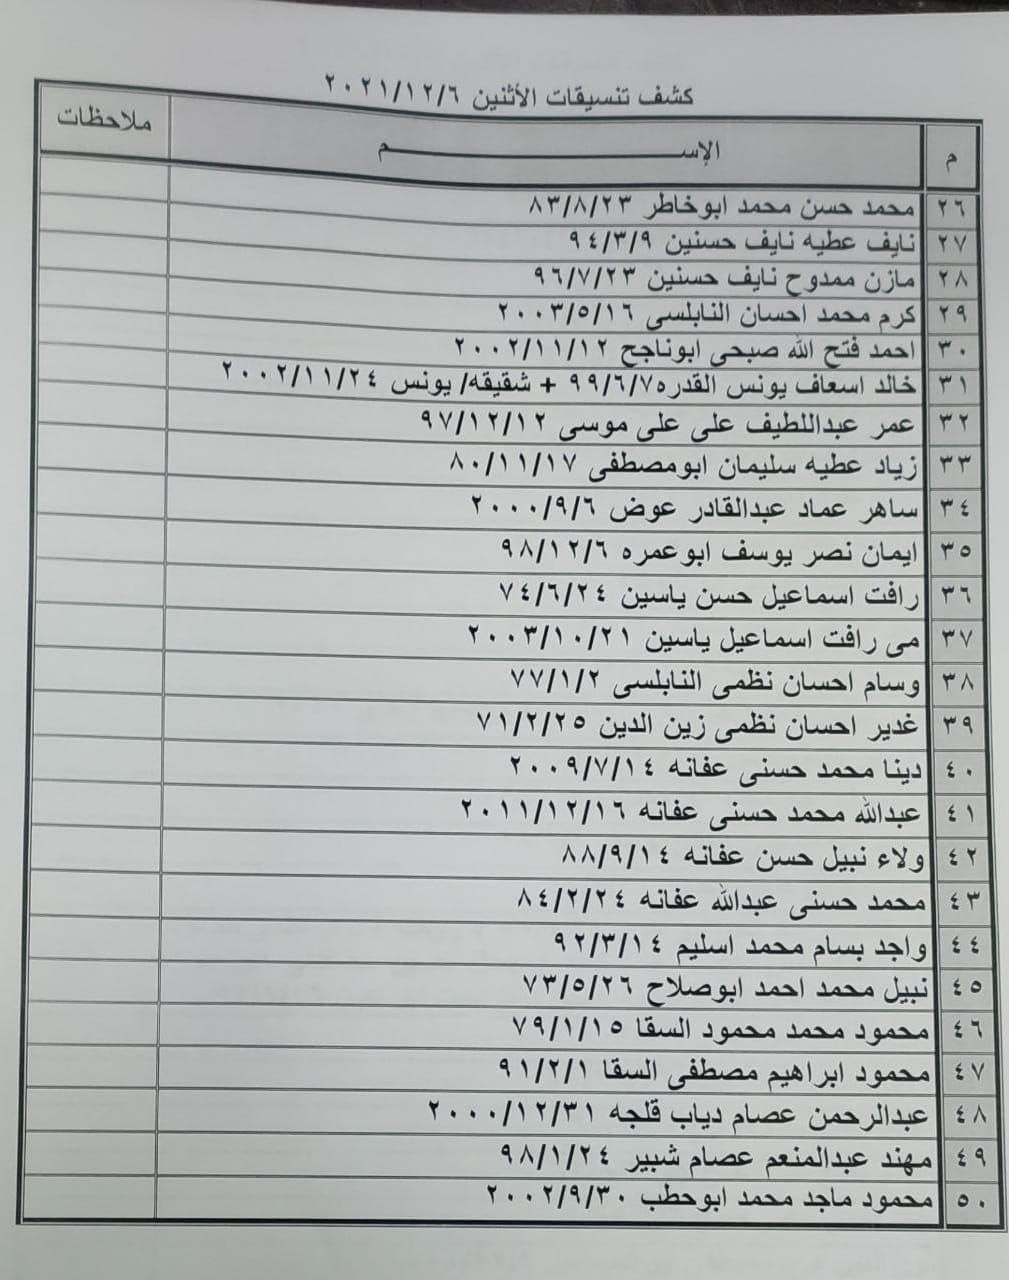 كشف تنسيقات الأثنين ٢٠٢١/١٢/٦
م الإســـــــــم ملاحظات
٢٦ محمد حسن محمد ابوخاطر ٨٣/٨/٢٣
٢٧ نايف عطيه نايف حسنين ٩٤/٣/٩
٢٨ مازن ممدوح نايف حسنين ٩٦/٧/٢٣
٢٩ كرم محمد احسان النابلسى ٢٠٠٣/٥/١٦
٣٠ احمد فتح الله صبحى ابوناجح ٢٠٠٢/١١/١٢
٣١ خالد اسعاف يونس القدره ٩٩/٦/٧ + شقيقه/ يونس ٢٠٠٢/١١/٢٤
٣٢ عمر عبداللطيف على على موسى ٩٧/١٢/١٢
٣٣ زياد عطيه سليمان ابومصطفى ٨٠/١١/١٧
٣٤ ساهر عماد عبدالقادر عوض ٢٠٠٠/٩/٦
٣٥ ايمان نصر يوسف ابوعمره ٩٨/١٢/٦
٣٦ رافت اسماعيل حسن ياسين ٧٤/٦/٢٤
٣٧ مى رافت اسماعيل ياسين ٢٠٠٣/١٠/٢١
٣٨ وسام احسان نظمى النابلسى ٧٧/١/٢
٣٩ غدير احسان نظمى زين الدين ٧١/٢/٢٥
٤٠ دينا محمد حسنى عفانه ٢٠٠٩/٧/١٤
٤١ عبدالله محمد حسنى عفانه ٢٠١١/١٢/١٦
٤٢ ولاء نبيل حسن عفانه ٨٨/٩/١٤
٤٣ محمد حسنى عبدالله عفانه ٨٤/٢/٢٤
٤٤ واجد بسام محمد اسليم ٩٢/٣/١٤
٤٥ نبيل محمد احمد ابوصلاح ٧٣/٥/٢٦
٤٦ محمود محمد محمود السقا ٧٩/١/١٥
٤٧ محمود ابراهيم مصطفى السقا ٩١/٢/١
٤٨ عبدالرحمن عصام دياب قلجه ٢٠٠٠/١٢/٣١
٤٩ مهند عبدالمنعم عصام شبير ٩٨/١/٢٤
٥٠ محمود ماجد محمد ابوحطب ٢٠٠٢/٩/٣٠